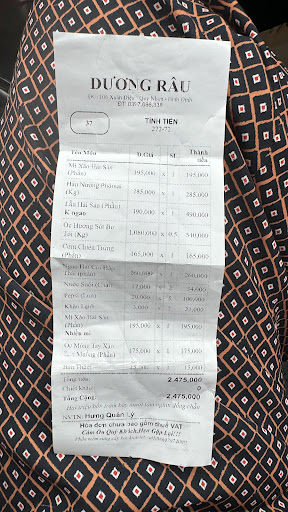 DƯƠNG RÂU
37
TÍNH TIỀN
272-72
Tên Món Đ.Giá SL Thành
tiền
Mì Xào Hải Sản
(Phần) 195,000 x 1 195,000
(Kg) 285,000 x 285,000
Lẩu Hải Sản (Phần) 490,000 x 490,000
Ốc Hương Sốt Bơ
Tỏi (Kg) 1,080,000 x 0.5 540,000
Cơm Chiên Trứng
(Phần) 165,000 x 1 165,000
260,000 x 1 260,000
Nước Suối (Chai) 17,000 x 2 34,000
Pepsi (Lon) 20,000 x 5 100,000
Khăn Lạnh 3,000 x
Mì Xào Hải Sản
(Phần) 195,000 x 1 195,000
Nhiều mì
Ốc Móng Tay Xào
Rau Muống (Phần) 175,000 x 1 175,000
15,000 x 1 15,000
Tổng tiền: 2,475,000
Chiết khấu: 0
Tổng Cộng: 2,475,000
Hai triệu bốn trăm bảy mươi lăm nghìn đồng chẵn
NVTN: Hưng Quản Lý
Hóa đơn chưa bao gồm thuế VAT
Cảm Ơn Quý Khách, Hẹn Gặp Lại!!!